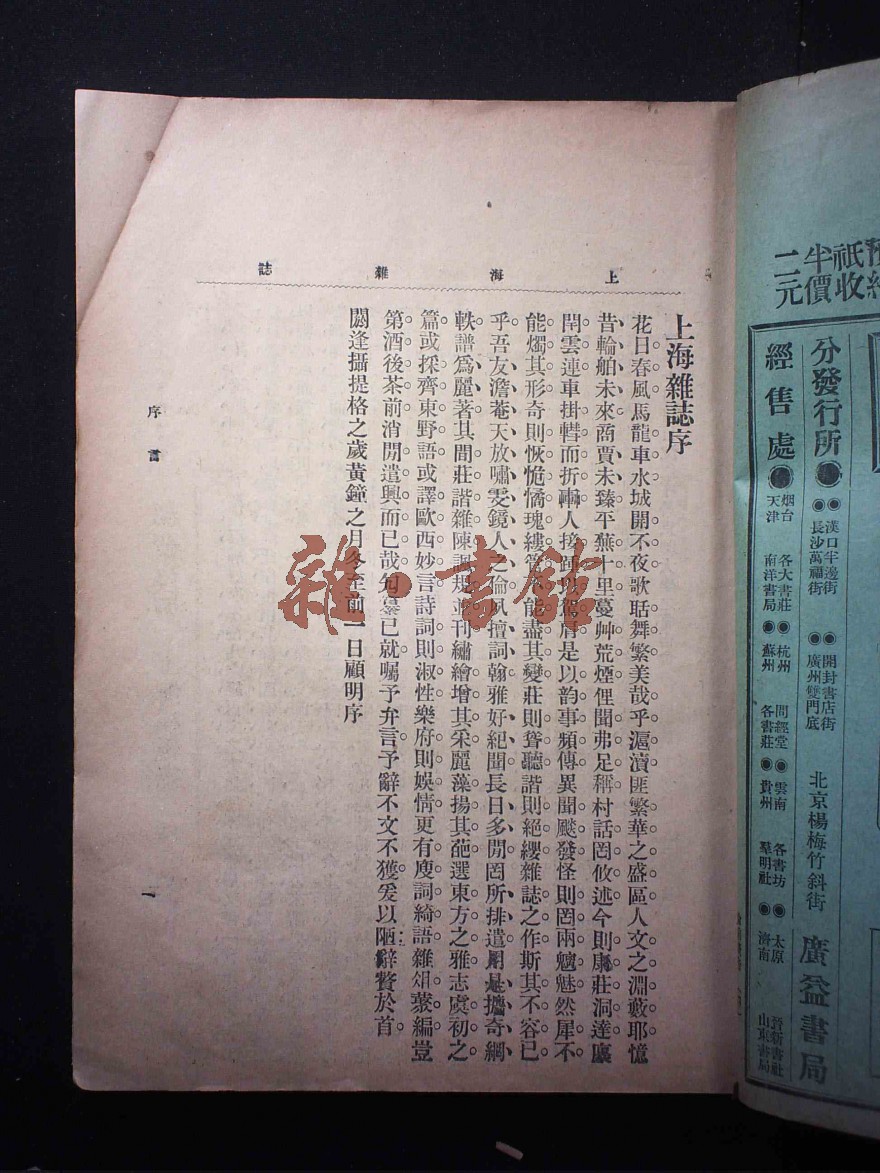 祇收
半價
二元
分發行所●●漢口半邊街●長沙萬福街●開封書店街●廣州雙門底 北京楊梅竹斜街 廣益書局
經售處●烟台天津 各大書莊南洋書局●●杭州蘇州 問經堂各書莊●●雲南貴州 各書坊羣明社●●太原濟南 晉新書社山東書局
上海雜誌
上海雜誌序
花日春風。馬龍車水。城開不夜。歌聒舞繁。美哉乎滬瀆。匪繁華之盛區。人文之淵藪耶。憶
昔輪舶未來。商賈未臻。平蕪十里。蔓艸荒煙。俚聞弗足稱。村話罔攸述。今則康莊洞達。廛
閈雲連。車掛轊而折轊。人接踵以駕肩。是以韵事頻傳。異聞飈發。怪則罔兩魑魅。然犀不
能燭其形。奇則恢恑憰瑰。縷管不能盡其變。莊則聳聽。諧則絕纓。雜誌之作。斯其不容已
乎。吾友澹菴天放嘯雯鏡人之倫。夙擅詞翰。雅好紀聞。長日多閒。罔所排遣。用是攟奇綱
軼。譜爲麗著。其間莊諧雜陳。諷規並刊。繡繪增其采。麗藻揚其葩。選東方之雅志。虞初之
篇。或採齊東野語。或譯歐西妙言。詩詞則淑性。樂府則娛情。更有廋詞綺語。雜俎叢編。豈
第酒後茶前。消閒遣興而已哉。匃窷已就。囑予弁言。予辭不文不獲。爰以陋辭贅於首。
閼逢攝提格之歲黃鐘之月冬至前一日顧明序
序言
一